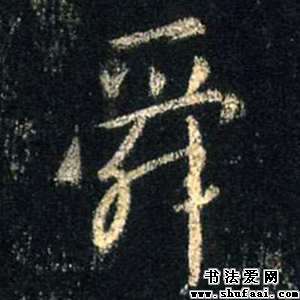 舜
书法爱网
www.shufaai.com